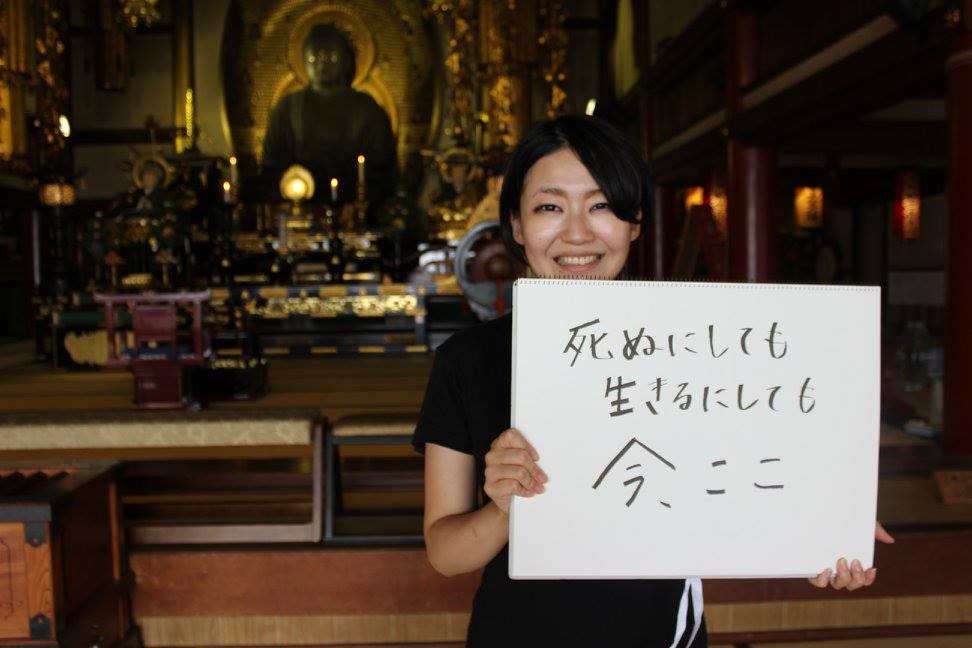 死ぬにしても
生きるにしても
今、ここ